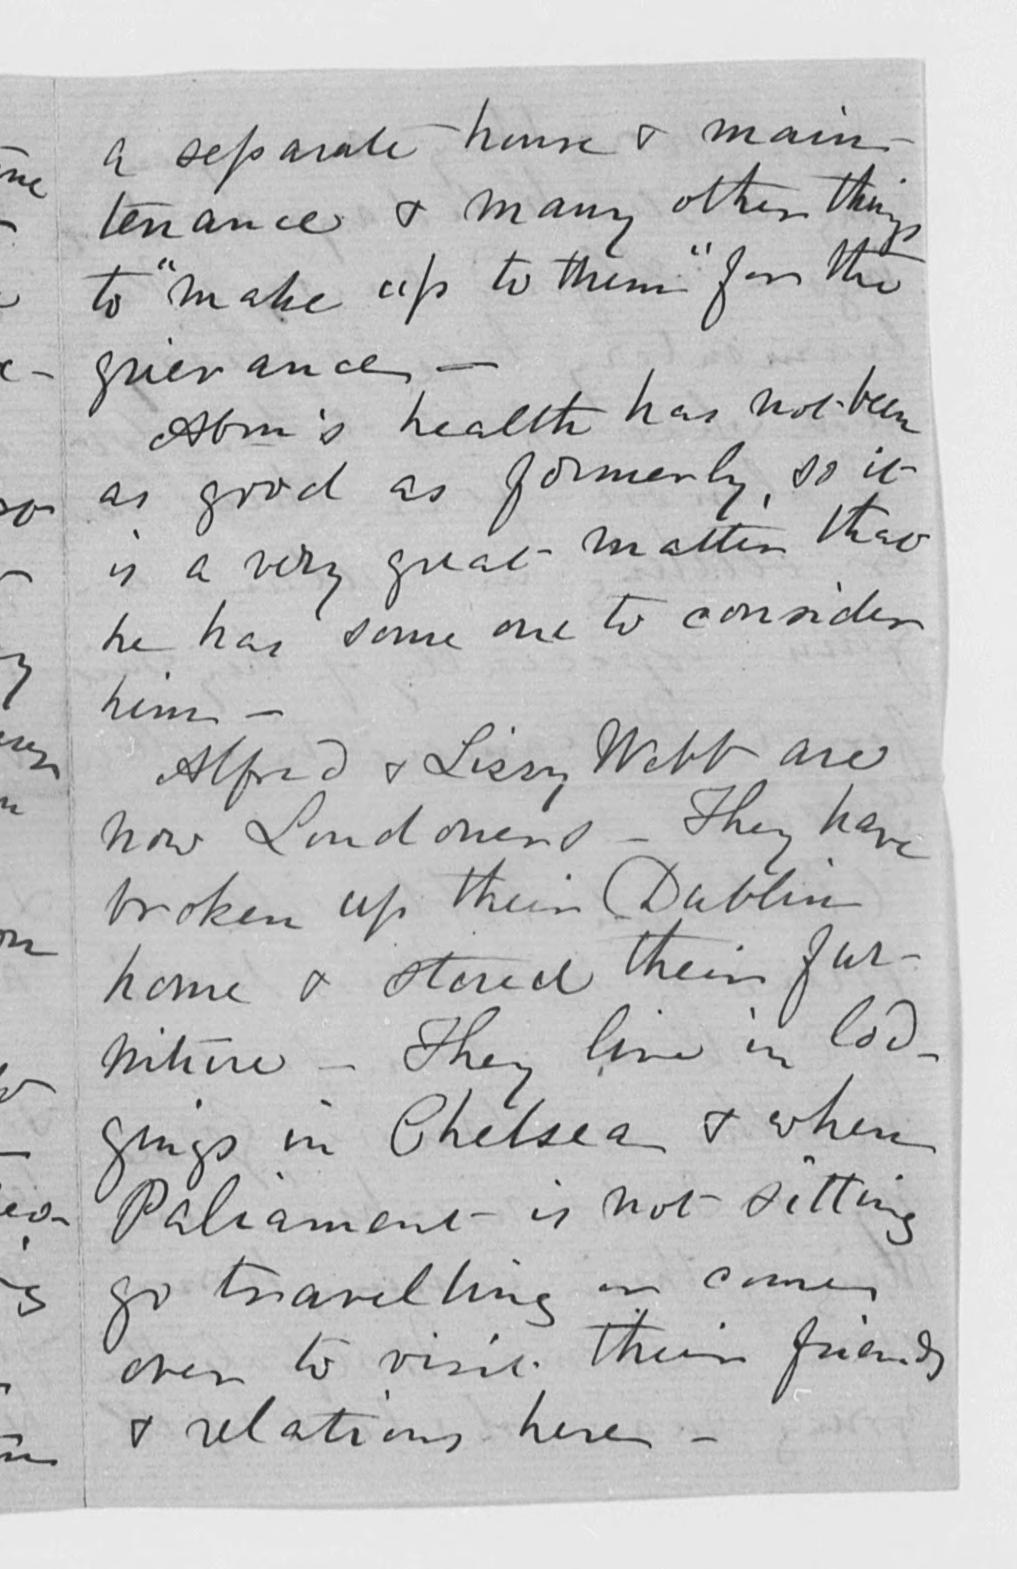 a separate house & main-
tenance & many other things
to "make up to them" for the
grievance, —
Abm's health has not been
as good as formerly, so it
is a very great matter that
he has some one to consider
him —
Alfred & Lizzy Webb are
now Londoners — They have
broken up their Dublin
home & stored their fur-
niture — They live in lod-
gings in Chelsea & when
Paliament is not sitting
go travelling or come
over to visit their friends
& relations here —